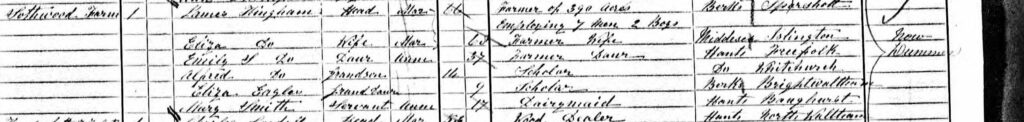 Farm 1 James Kingham Head Mar 66 Farmer of 390 acres Berks Sparsholt
Employing 7 Men 2 Boys
Eliza Do Wife Mar 63 Farmer Wife Middlesex Islington
Emily Do Daur Unm 37 Farmer Daur Hants Freefolk
Alfred Do Grandson 14 Scholar Do Whitchurch
Eliza Eagles Grand Daur 9 Scholar Berks Brightwaltham
Mary Smith Servant Unm 17 Dairymaid Hants Baughurst
1 Head Mar Wood Dealer Hants North Waltham